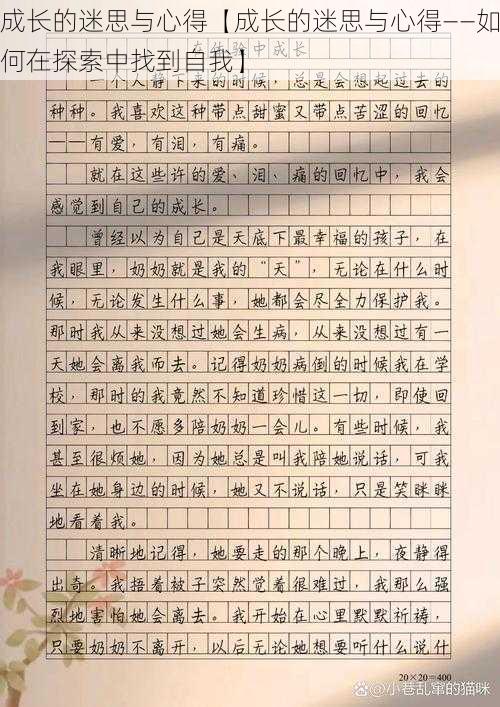 成长的迷思与心得【成长的迷思与心得——如
何在探索中找到自我】
在体验中成长
一个人静下来的时候，总是会想起过去的
种种。我喜欢这种带点甜蜜又带点苦涩的回忆
——有爱，有泪，有痛。
就在这些许的爱、泪、痛的回忆中，我会
感觉到自己的成长。
曾经以为自己是天底下最幸福的孩子，在
我眼里，奶奶就是我的“天”，无论在什么时
候，无论发生什么事，她都会尽全力保护我。
那时我从来没想过她会生病，从来没想过有一
天她会离我而去。记得奶奶病倒的时候我在学
校，那时的我竟然不知道珍惜这一切，即使回
到家，也不愿多陪奶奶一会儿。有些时候，我
甚至很烦她，因为她总是叫我陪她说话，可我
坐在她身边的时候，她又不说话，只是笑眯眯
地看着我。
清晰地记得，她要走的那个晚上，夜静得
出奇。我捂着被子突然觉着很难过，我那么强
烈地害怕她会离去。我开始在心里默默祈祷，
只要奶奶不离开，以后无论她想要听什么说什
20×20=400
@小巷乱窜的猫咪